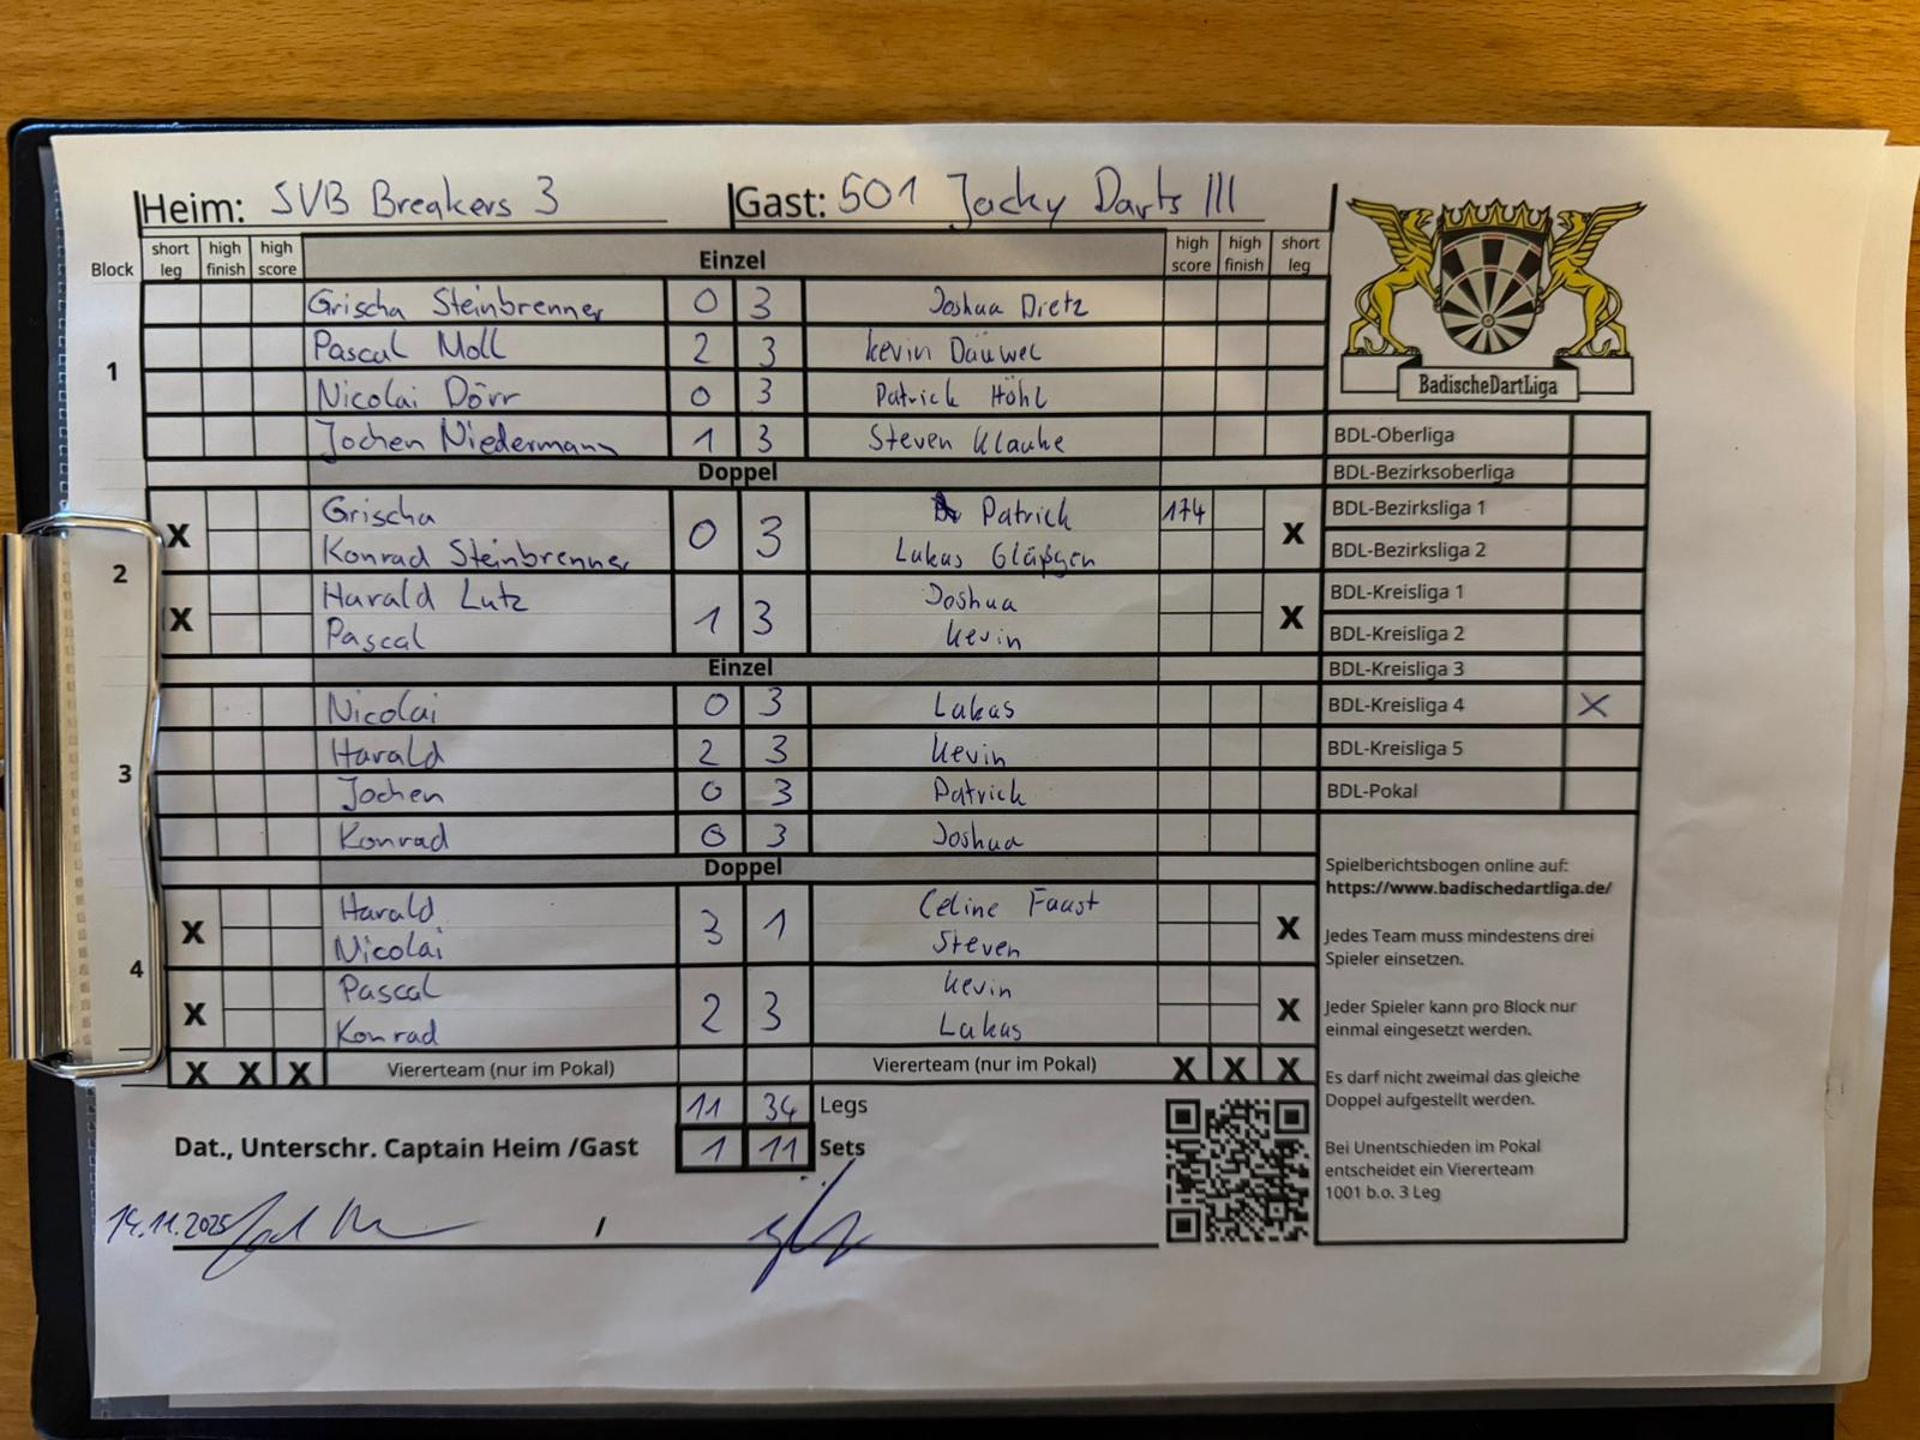 Heim: SVB Breakers 3 Gast: 501 Jacky Darts III
Block short leg high finish high score Einzel high score high finish short leg
1
Grischa Steinbrenner 0 3 Joshua Dietz
Pascal Moll 2 3 Kevin Däuwel
Nicolai Dörr 0 3 Patrick Höhl
Jochen Niedermann 1 3 Steven Klauke
Doppel
2
X Grischa 0 3 Patrick 174 X
Konrad Steinbrenner Lukas Gläßgen
X Harald Lutz 1 3 Joshua X
Pascal Kevin
Einzel
3
Nicolai 0 3 Lukas
Harald 2 3 Kevin
Jochen 0 3 Patrick
Konrad 0 3 Joshua
Doppel
4
X Harald 3 1 Celine Faust X
Nicolai Steven
X Pascal 2 3 Kevin X
Konrad Lukas
X X X Viererteam (nur im Pokal) Viererteam (nur im Pokal) X X X
11 34 Legs
Dat., Unterschr. Captain Heim /Gast 1 11 Sets
14.11.2025 /
BadischeDartLiga
BDL-Oberliga
BDL-Bezirksoberliga
BDL-Bezirksliga 1
BDL-Bezirksliga 2
BDL-Kreisliga 1
BDL-Kreisliga 2
BDL-Kreisliga 3
BDL-Kreisliga 4 X
BDL-Kreisliga 5
BDL-Pokal
Spielberichtsbogen online auf:
https://www.badischedartliga.de/
Jedes Team muss mindestens drei
Spieler einsetzen.
Jeder Spieler kann pro Block nur
einmal eingesetzt werden.
Es darf nicht zweimal das gleiche
Doppel aufgestellt werden.
Bei Unentschieden im Pokal
entscheidet ein Viererteam
1001 b.o. 3 Leg